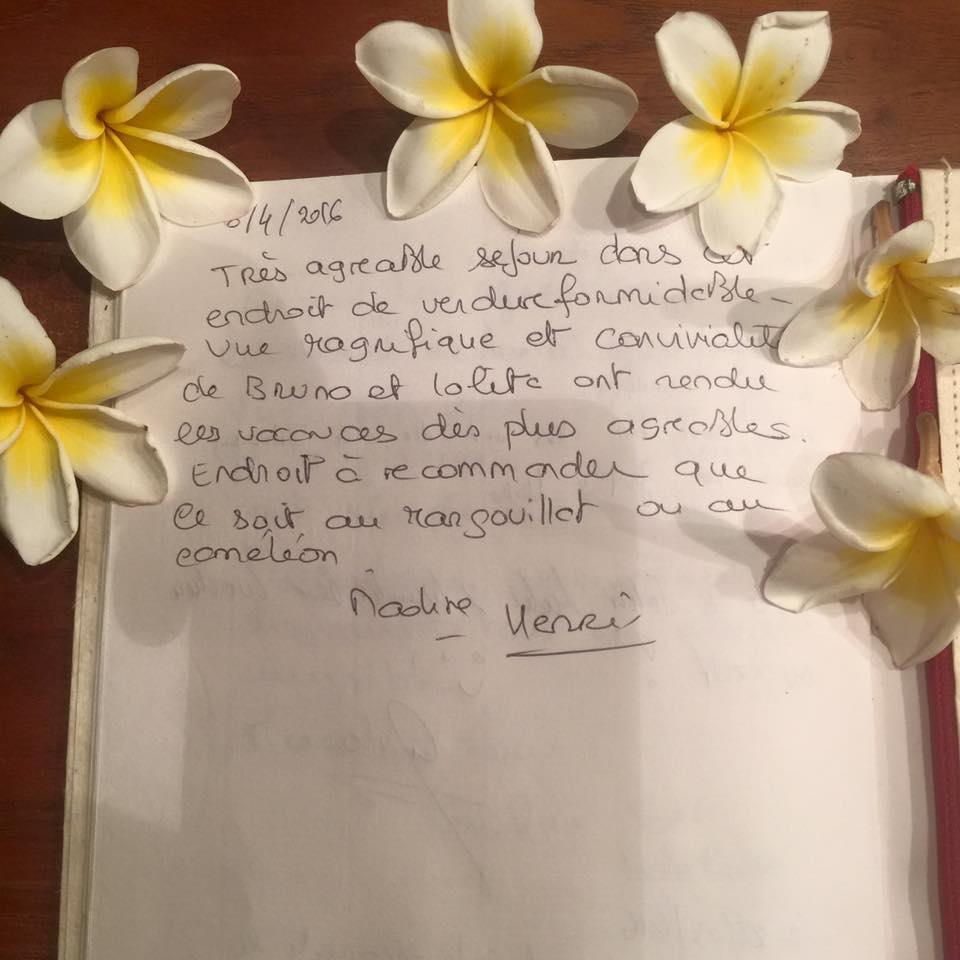 8/4/2016
Très agreable sejour dans cet
endroit de verdure formidable -
Vue magnifique et convivialité
de Bruno et Lolita ont rendu
ces vacances dès plus agreables.
Endroit à recommander que
ce soit au margouillat ou au
caméléon
Nadine
Henri